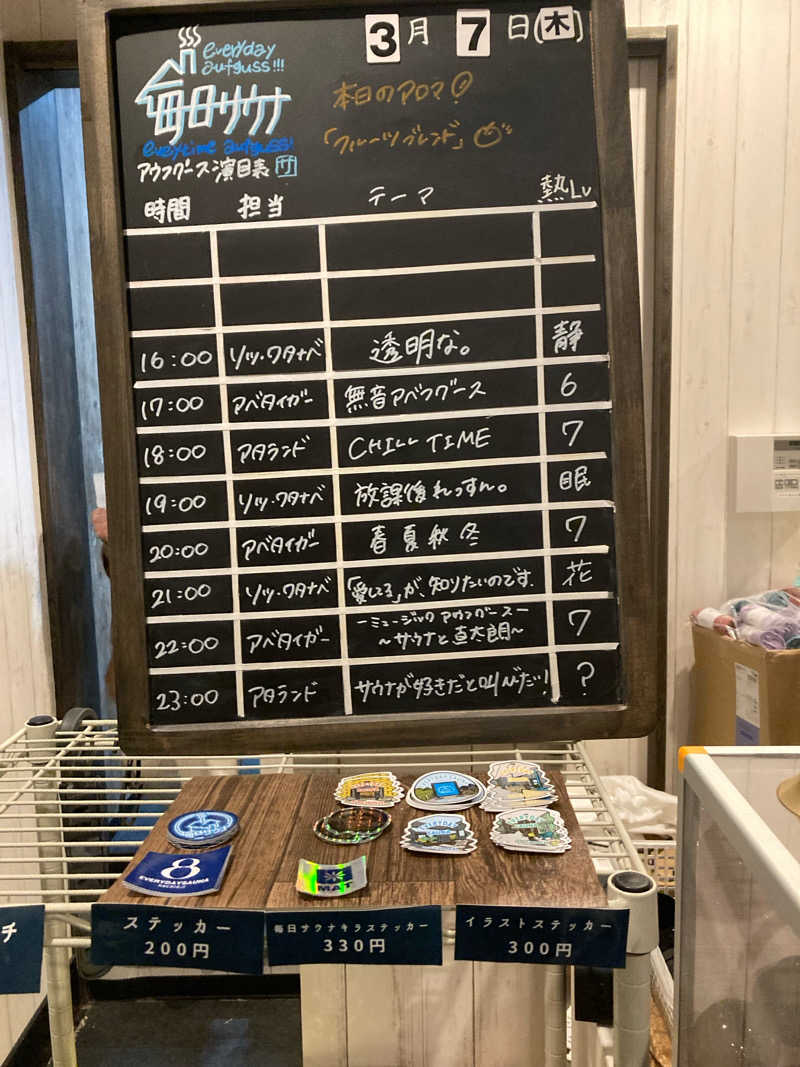 everyday
aufguss!!!
3月 7日(木)
毎日サウナ
everytime aufguss!
本日のアロマ!
「フルーツブレンド」
アウフグース演目表 サ
時間 担当 テーマ 熱Lv
16:00 ソッ・ワタナベ 透明な。 静
17:00 アベタイガー 無音アベフグース 6
18:00 アタランド CHILL TIME 7
19:00 ソッ・ワタナベ 放課後れっすん。 眠
20:00 アベタイガー 春夏秋冬 7
21:00 ソッ・ワタナベ 「愛してる」が、知りたいのです. 花
22:00 アベタイガー ーミュージック アウフグースー 7
〜サウナと直太朗〜
23:00 アタランド サウナが好きだと叫びたい! ?
8
EVERYDAYSAUNA
MAT
チ
ステッカー
200円
毎日サウナキラステッカー
330円
イラストステッカー
300円